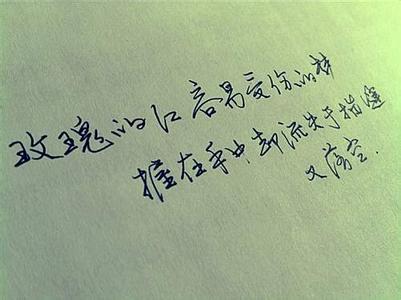 玫瑰的红 容易受伤的梦
握在手中却流失于指缝
又落空.